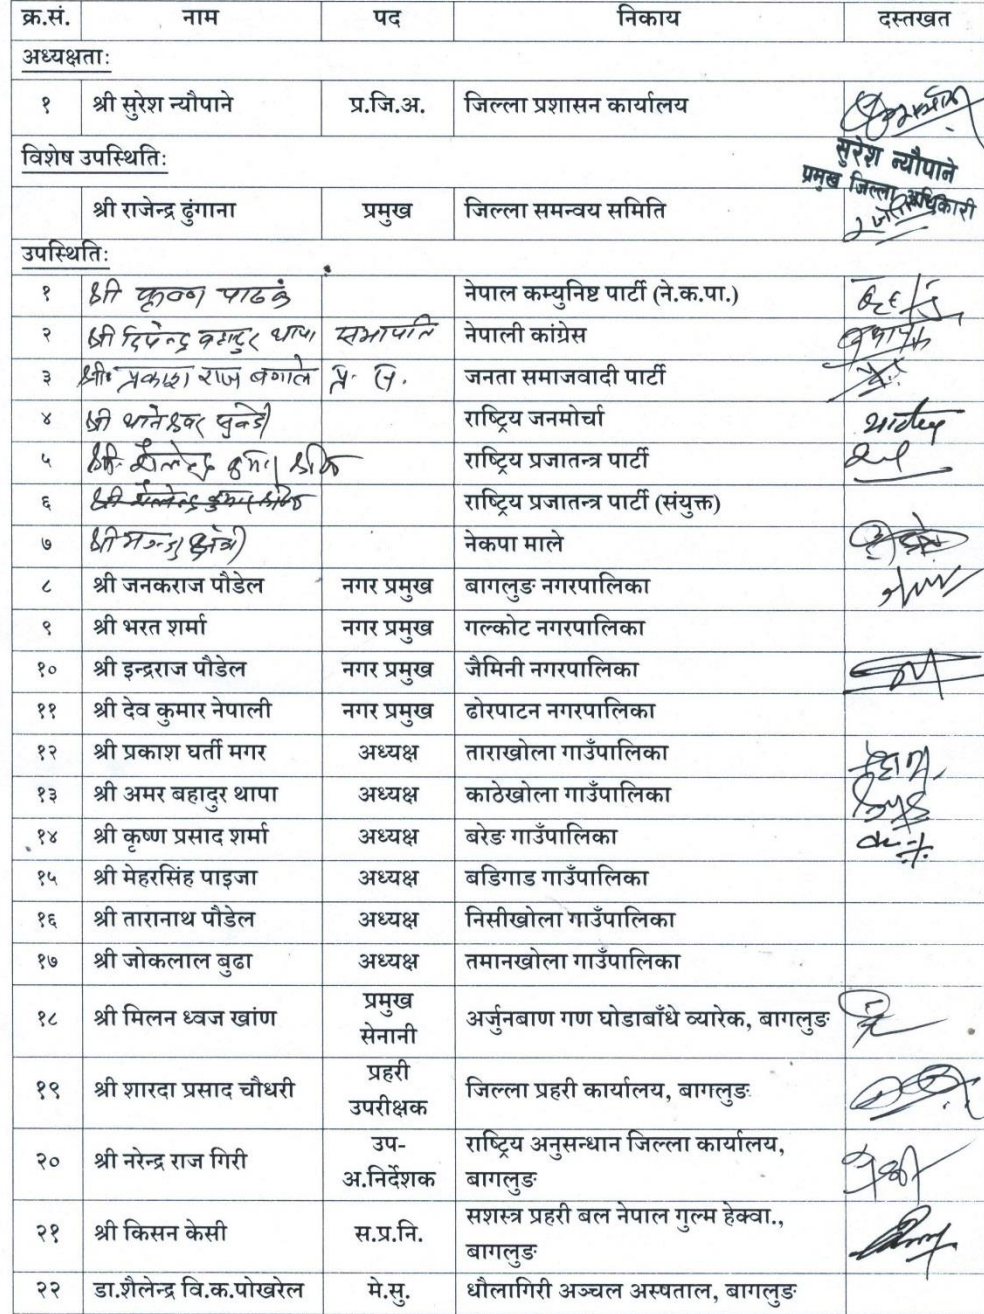 क्र.सं. नाम पद निकाय दस्तखत
अध्यक्षता:
१ श्री सुरेश न्यौपाने प्र.जि.अ. जिल्ला प्रशासन कार्यालय
सुरेश न्यौपाने
प्रमुख जिल्ला अधिकारी
विशेष उपस्थिति:
श्री राजेन्द्र ढुंगाना प्रमुख जिल्ला समन्वय समिति
उपस्थिति:
१ श्री कृष्ण पाठक नेपाल कम्युनिष्ट पार्टी (ने.क.पा.)
२ श्री दिपेन्द्र बहादुर थापा सभापति नेपाली कांग्रेस
३ श्री प्रकाश राज बगाले जनता समाजवादी पार्टी
४ श्री थानेश्वर राष्ट्रिय जनमोर्चा
५ श्री शैलेन्द्र कुमार राष्ट्रिय प्रजातन्त्र पार्टी
६ राष्ट्रिय प्रजातन्त्र पार्टी (संयुक्त)
७ श्री नेकपा माले
८ श्री जनकराज पौडेल नगर प्रमुख बागलुङ नगरपालिका
९ श्री भरत शर्मा नगर प्रमुख गल्कोट नगरपालिका
१० श्री इन्द्रराज पौडेल नगर प्रमुख जैमिनी नगरपालिका
११ श्री देव कुमार नेपाली नगर प्रमुख ढोरपाटन नगरपालिका
१२ श्री प्रकाश घर्ती मगर अध्यक्ष ताराखोला गाउँपालिका
१३ श्री अमर बहादुर थापा अध्यक्ष काठेखोला गाउँपालिका
१४ श्री कृष्ण प्रसाद शर्मा अध्यक्ष बरेङ गाउँपालिका
१५ श्री मेहरसिंह पाइजा अध्यक्ष बडिगाड गाउँपालिका
१६ श्री तारानाथ पौडेल अध्यक्ष निसीखोला गाउँपालिका
१७ श्री जोकलाल बुढा अध्यक्ष तमानखोला गाउँपालिका
१८ श्री मिलन ध्वज खांण प्रमुख सेनानी अर्जुनबाण गण घोडाबाँधे व्यारेक, बागलुङ
१९ श्री शारदा प्रसाद चौधरी प्रहरी उपरीक्षक जिल्ला प्रहरी कार्यालय, बागलुङ
२० श्री नरेन्द्र राज गिरी उप-अ.निर्देशक राष्ट्रिय अनुसन्धान जिल्ला कार्यालय,
बागलुङ
२१ श्री किसन केसी स.प्र.नि. सशस्त्र प्रहरी बल नेपाल गुल्म हेक्वा.,
बागलुङ
२२ डा.शैलेन्द्र वि.क.पोखरेल मे.सु. धौलागिरी अञ्चल अस्पताल, बागलुङ